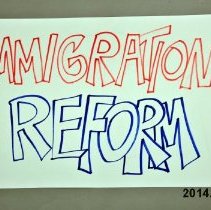 MMIGRATION
REFORM
2014